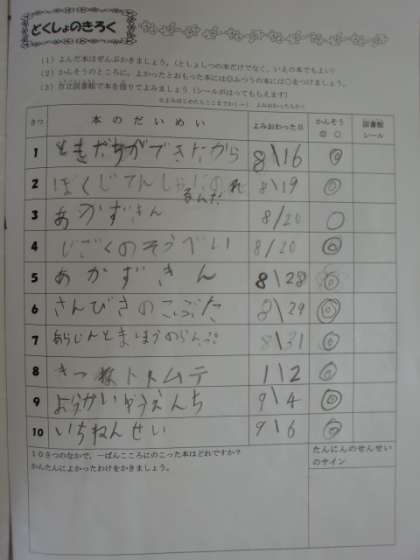 どくしょのきろく
(1) よんだ本はぜんぶかきましょう。(としょしつの本だけでなく、いえの本でもよい)
(2) かんそうのところに、よかったとおもった本には◎ふつうの本には○をつけましょう。
(3) 市立図書館で本を借りてよみましょう (シールがはってもらえます)
さつ 本のだいめい よみおわった日 かんそう ◎ ○ 図書館シール
1 ともだちができたから 8\16 ◎
2 ぼくじてんしゃにのれるんだ 8\19 ◎
3 あかずきん 8/20 ○
4 じごくのそうべい 8/20 ◎
5 あかずきん 8\28 ◎
6 さんびきのこぶた 8\29 ◎
7 あらじんとまほうのらんぷ 8\31 ◎
8 1\2 ◎
9 ようかいゆうえんち 9\4 ◎
10 いちねんせい 9\6 ◎
10さつのなかで、一ばんこころにのこった本はどれですか?
かんたんによかったわけをかきましょう。
たんにんのせんせい
のサイン